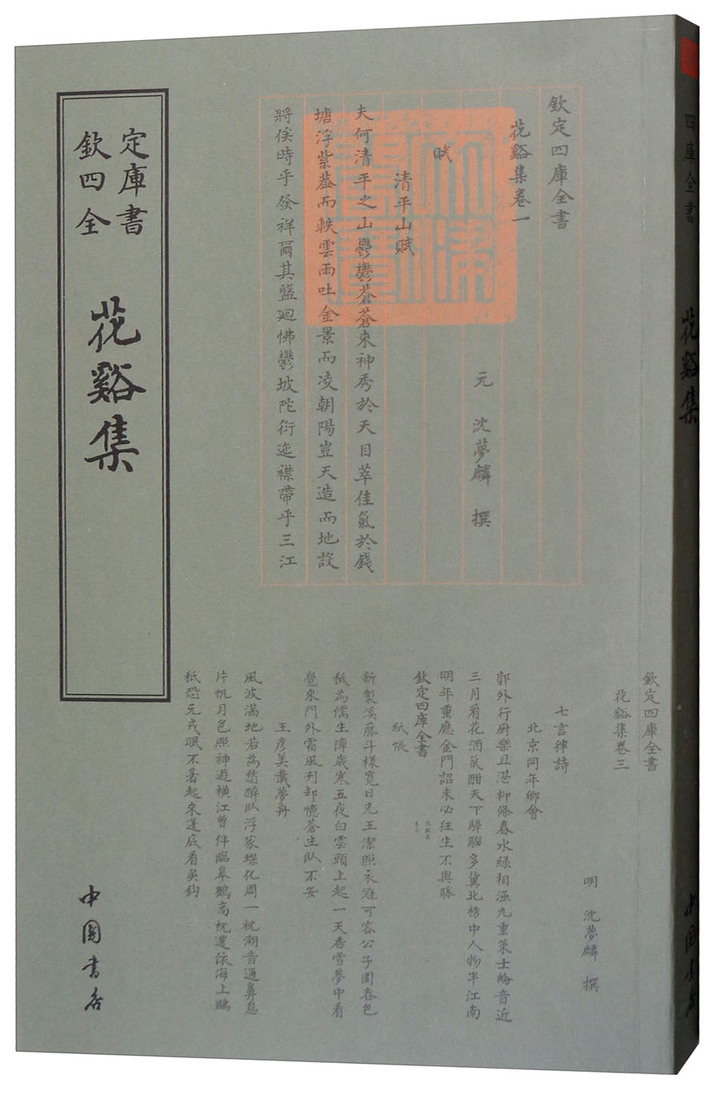 欽定四庫全書
花谿集
中國書店
欽定四庫全書
花谿集卷一
元 沈夢麟 撰
賦
清平山賦
夫何清平之山鬱鬱蒼蒼來神秀於天目萃佳氣於錢
塘浮紫蓋而軼雲雨吐金景而凌朝陽豈天造而地設
將俟時乎發祥爾其盤迴怫鬱坡陀衍迤襟帶乎三江
欽定四庫全書
花谿集卷三
明 沈夢麟 撰
七言律詩
北京同年鄉會
郭外行廚樂且湛柳條春水綠相涵九重策士綸音近
三月看花酒氣酣天下驊騮多冀北榜中人物半江南
明年重應金門詔未必狂生不與驂
欽定四庫全書
紙帳
新製溪藤斗樣寬日光玉潔照衣冠可容公子圍春色
秖為儒生障歲寒五夜白雲頭上起一天香雪夢中看
覺來門外雲風列却憶蒼生臥不安
王彥美載夢舟
風波滿地若為愁醉臥浮家蝶化周一枕潮音通鼻息
片帆月色照神遊橫江曾伴臨皋鶴高枕還依海上鷗
秖恐元戎眠不著起來蓬底看吳鈎
四庫全書
花谿集
中國書店